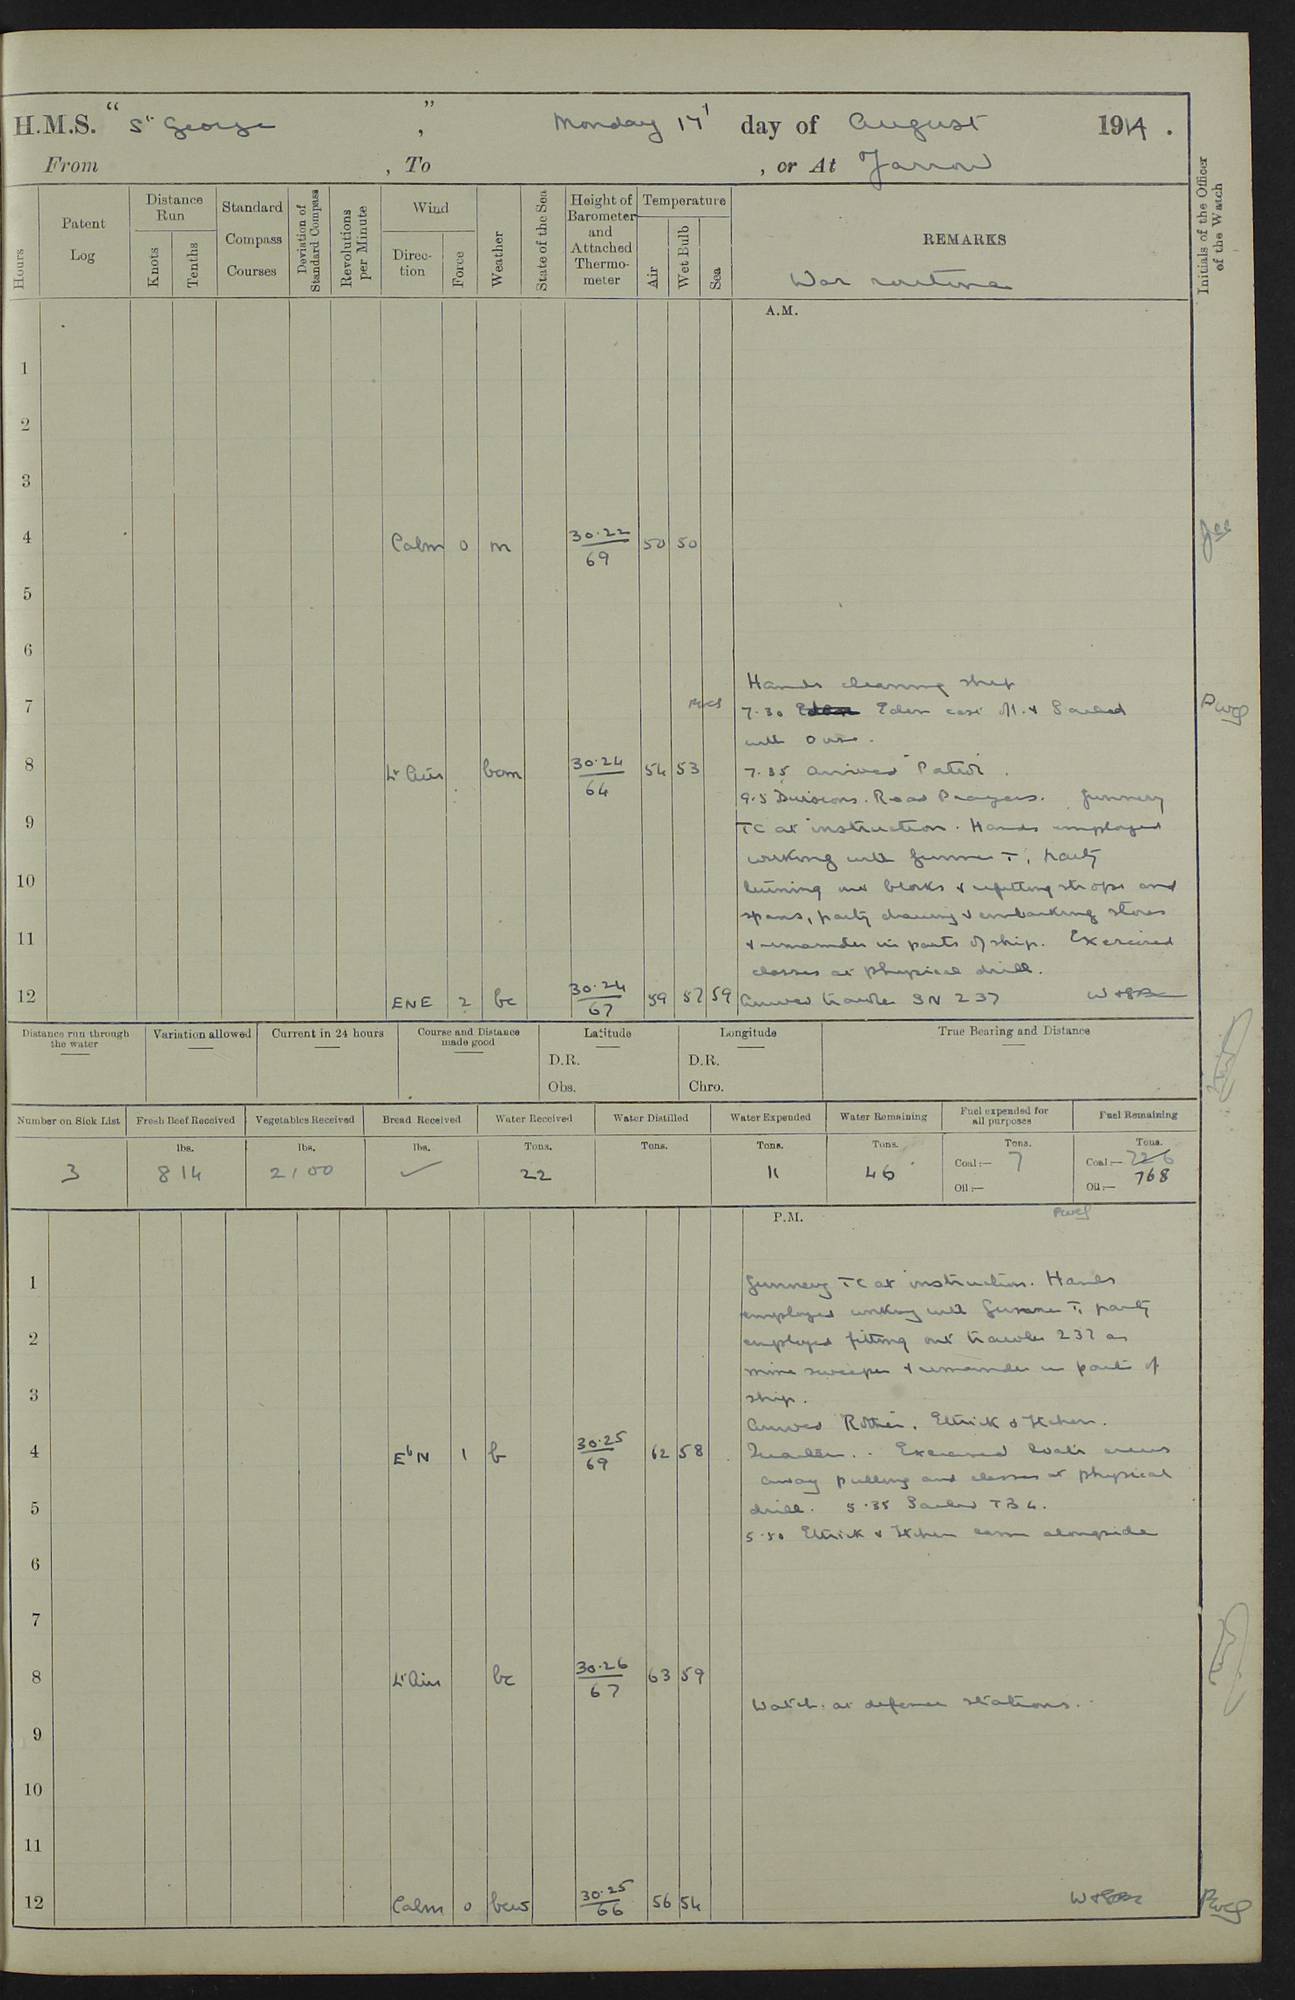 H.M.S. "St George" , Monday 17th day of August 1914.
From , To , or At Jarrow
Hours
Patent Log
Distance Run
Knots
Tenths
Standard Compass Courses
Deviation of Standard Compass
Revolutions per Minute
Wind
Direction
Force
Weather
State of the Sea
Height of Barometer and Attached Thermometer
Temperature
Air
Wet Bulb
Sea
REMARKS
Initials of the Officer of the Watch
War routine
A.M.
1
2
3
4 Calm 0 m 30.22/69 50 50
5
6
Hands cleaning ship
7
7.30 Eden cast off & Sailed
with Ouse.
8 Lt Airs bcm 30.24/64 54 53
7.35 arrived Patrol.
9.5 Divisions. Read Prayers. Gunnery
9
TC at instruction. Hands employed
working with Gunner T, party
10
blocks & refitting strops and
spans, party drawing & embarking stores
11
& remainder in parts of ship. Exercised
classes at physical drill.
12 ENE 2 bc 30.24/67 59 57 59 Arrived trawler SN 237
Distance run through the water
Variation allowed
Current in 24 hours
Course and Distance made good
Latitude
D.R.
Obs.
Longitude
D.R.
Chro.
True Bearing and Distance
Number on Sick List
Fresh Beef Received
Vegetables Received
Bread Received
Water Received
Water Distilled
Water Expended
Water Remaining
Fuel expended for all purposes
Fuel Remaining
lbs. lbs. lbs. Tons. Tons. Tons. Tons. Tons. Tons.
3 814 22 11 46 Coal:— 7 Coal:— 726 768
Oil:— Oil:—
P.M.
1 Gunnery TC at instruction. Hands
employed working with Gunner T, party
2 employed fitting out trawler 237 as
mine sweeper & remainder in parts of
3 ship.
Arrived Rother, Ettrick & Itchen.
4 E b N 1 b 30.25/69 62 58 Quarters. Exercised boats crews
away pulling and classes at physical
5 drill. 5.35 Sailed TB 4.
5.50 Ettrick & Itchen came alongside
6
7
8 Lt Airs bc 30.26/67 63 59
Watch at defence stations.
9
10
11
12 Calm 0 bcw 30.25/66 56 54